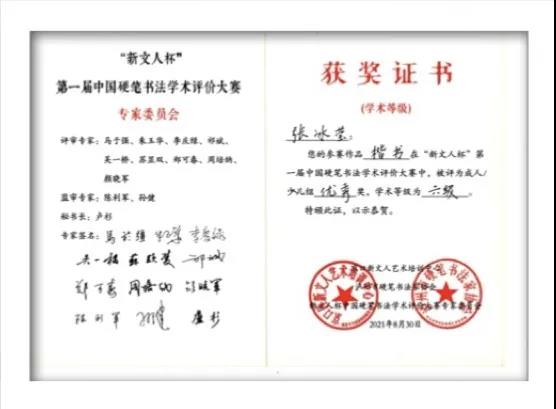 “新文人杯”
第一届中国硬笔书法学术评价大赛
专家委员会
评审专家：马于强、朱玉华、李庆绿、祁斌、
吴一桥、苏显双、郑可春、周培纳、
颜晓军
监审专家：陈利军、孙健
秘书长：卢杉
专家签名：
获奖证书
(学术等级)
张冰莹：
您的参赛作品 楷书 在“新文人杯”第
一届中国硬笔书法学术评价大赛中，被评为成人/
少儿组 优秀 奖，学术等级为 六级 。
特颁此证，以示恭贺。
新文人艺术培训中心
硬笔书法家协会
新文人杯中国硬笔书法学术评价大赛专家委员会
2021年8月30日